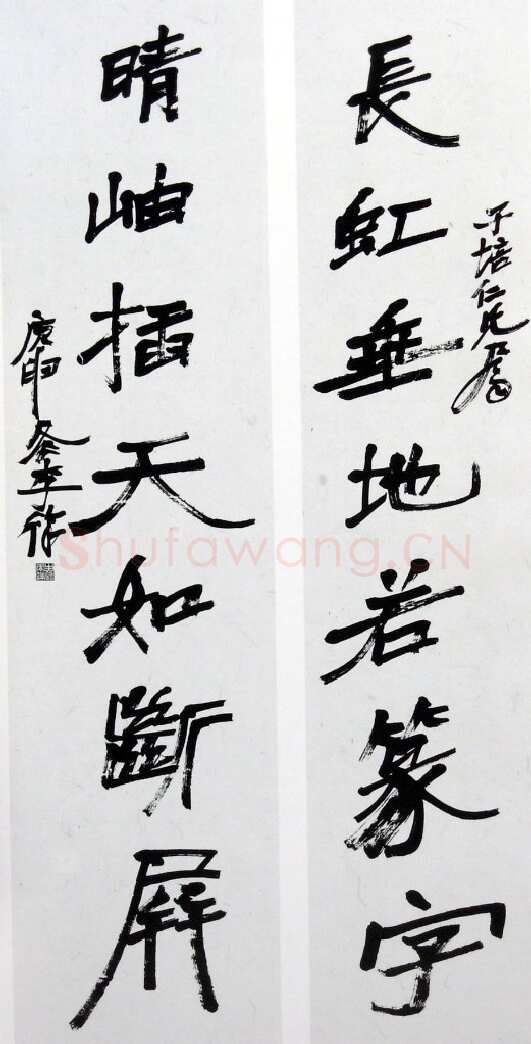 長虹垂地若篆字
子培仁兄屬
晴岫插天如斷屏
庚申冬李
Shufawang.CN